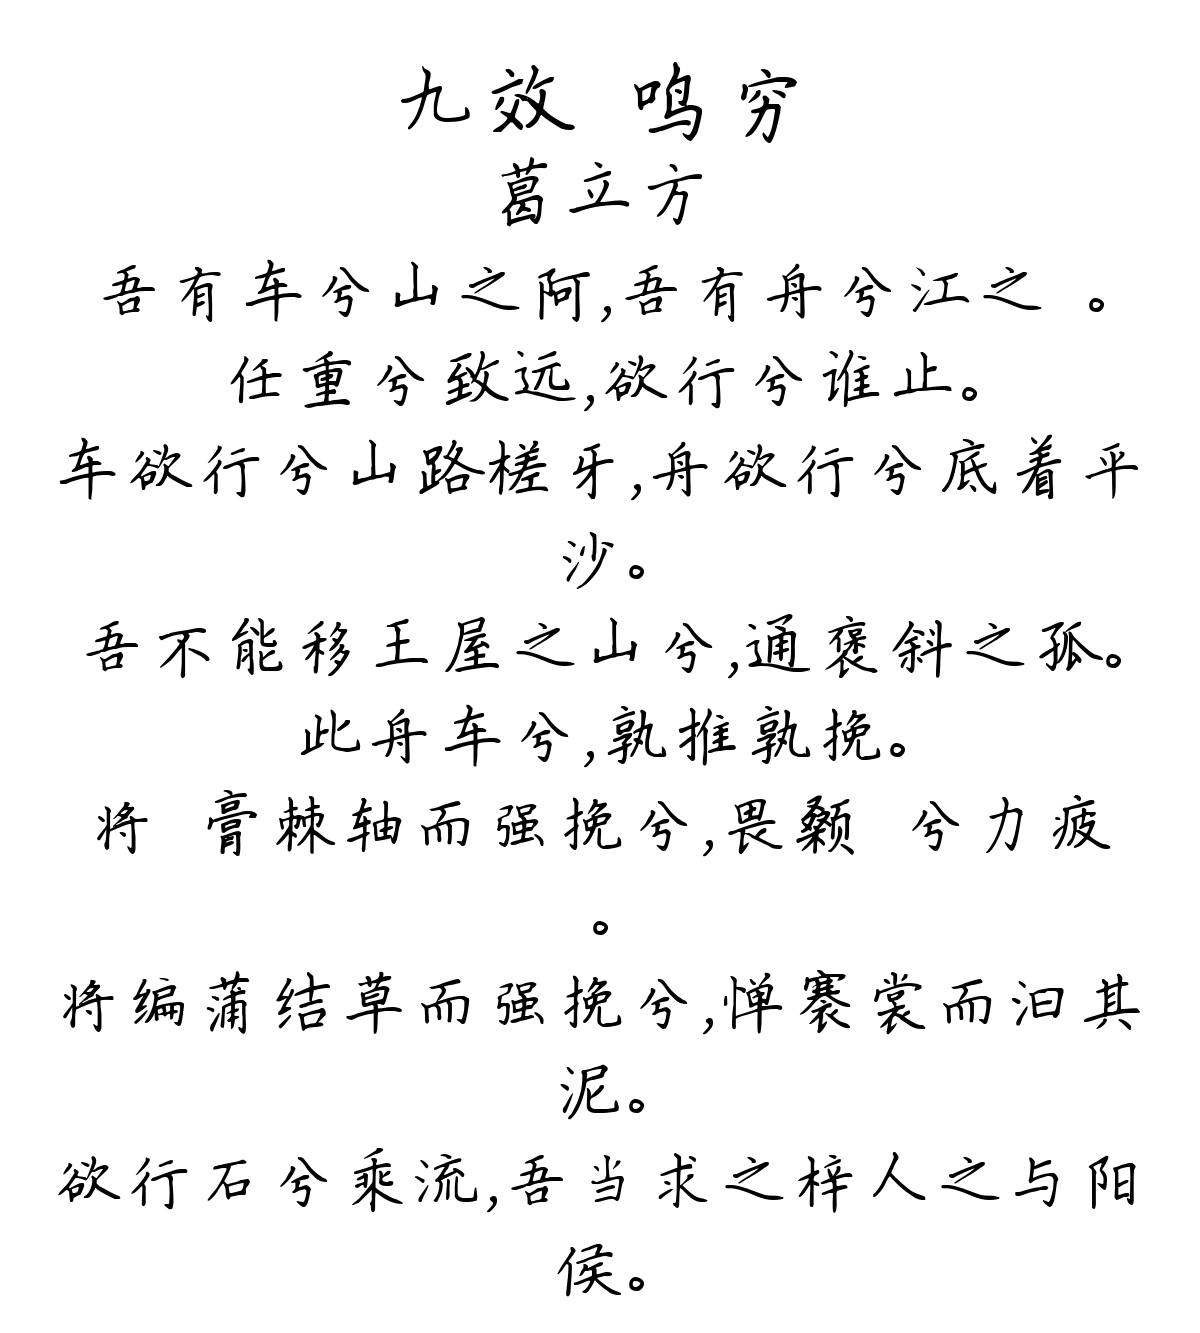 九效 鸣穷
葛立方
吾有车兮山之阿,吾有舟兮江之 。
任重兮致远,欲行兮谁止。
车欲行兮山路槎牙,舟欲行兮底着平
沙。
吾不能移王屋之山兮,通褒斜之孤。
此舟车兮,孰推孰挽。
将 膏棘轴而强挽兮,畏颡 兮力疲
。
将编蒲结草而强挽兮,惮褰裳而汩其
泥。
欲行石兮乘流,吾当求之梓人之与阳
侯。